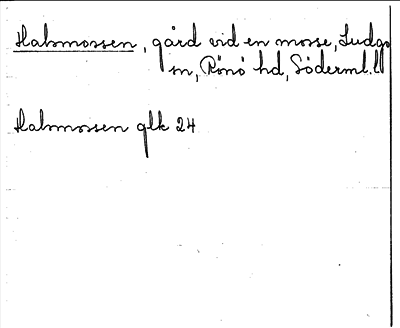 Halsmossen, gård vid en mosse, Ludgo
sn, Rönö hd, Söderml. l
Halsmossen glk 24